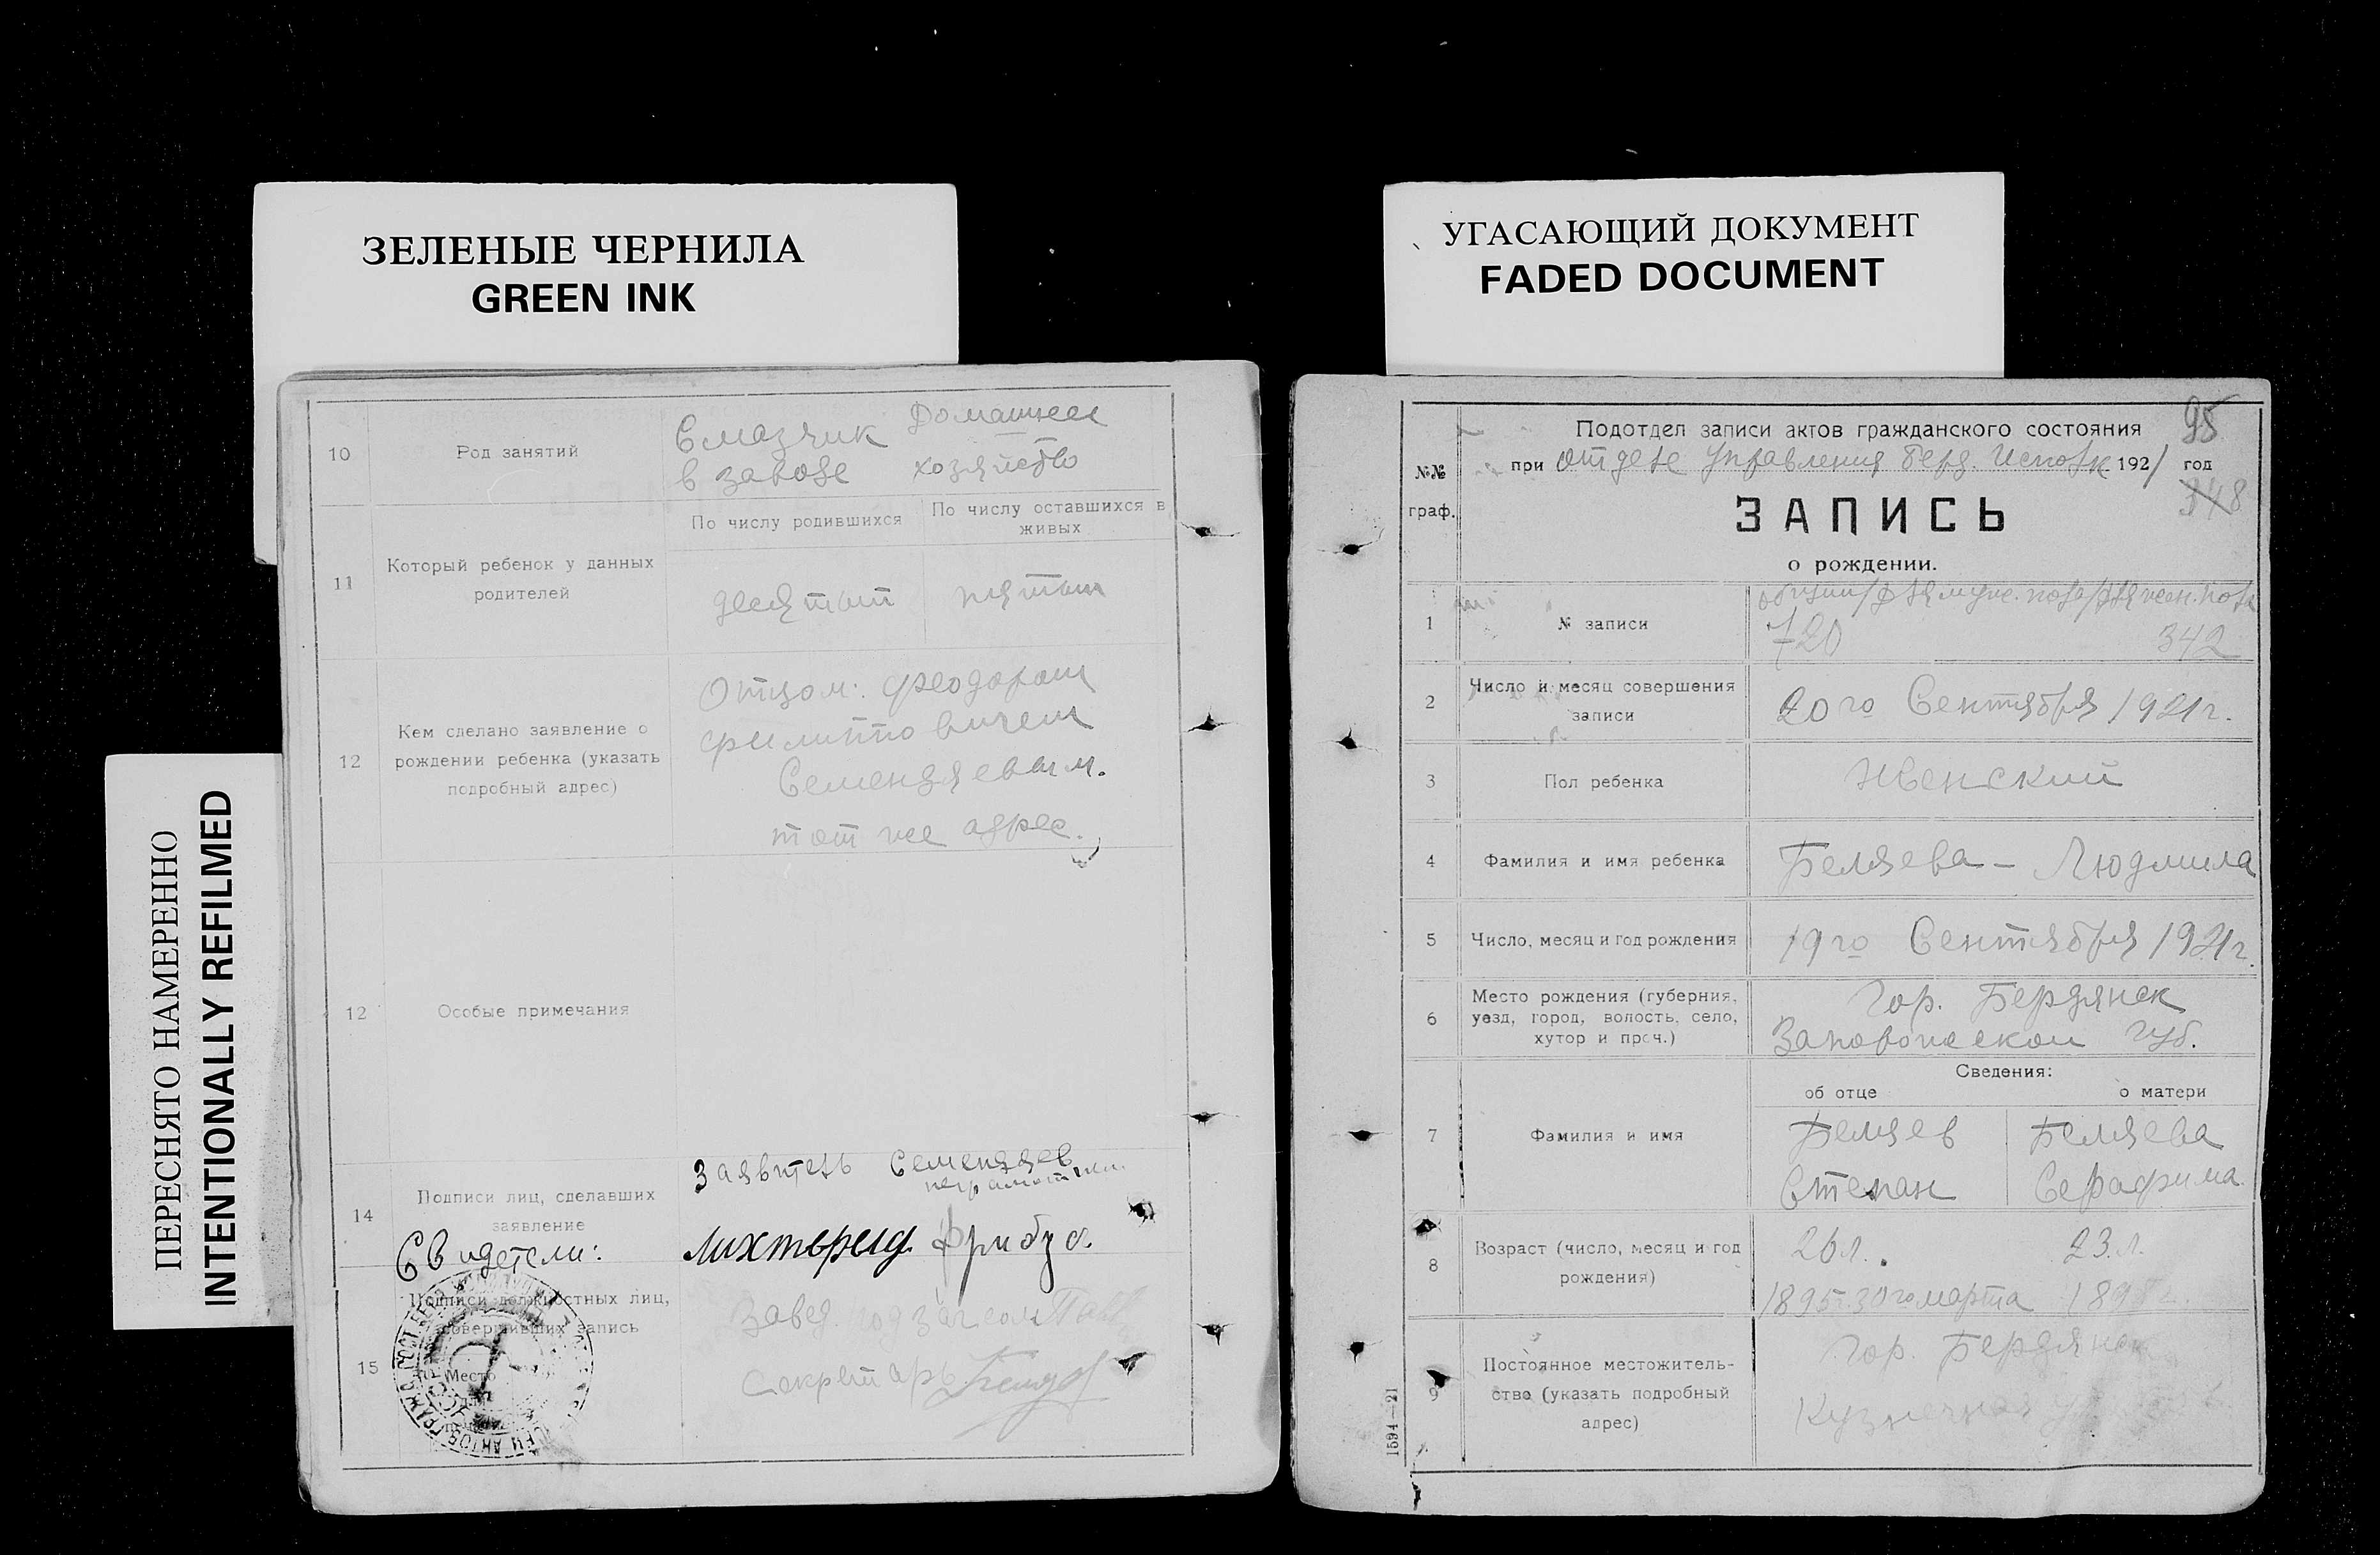 ЗЕЛЕНЫЕ ЧЕРНИЛА
GREEN INK
ПЕРЕСНЯТО НАМЕРЕННО
INTENTIONALLY REFILMED
10
Род занятий
Смазчик
в заводе
Домашнее
хозяйство
11
Который ребенок у данных
родителей
По числу родившихся
По числу оставшихся в
живых
десятый
пятый
12
Кем сделано заявление о
рождении ребенка (указать
подробный адрес)
Отцом: Феодором
Филипповичем
Семендяевым.
тот же адрес.
12
Особые примечания
14
Подписи лиц, сделавших
заявление
Заявитель Семендяев
неграмотный
Свидетели:
15
Подписи должностных лиц,
совершивших запись
Место
Завед.
Секретарь
УГАСАЮЩИЙ ДОКУМЕНТ
FADED DOCUMENT
№№
граф.
Подотдел записи актов гражданского состояния
95
при отделе Управления Берд. Исполк. 1921 год
348
ЗАПИСЬ
о рождении.
1
№ записи
общий/для муж. пола/для жен. пола
720
342
2
Число и месяц совершения
записи
20го Сентября 1921г.
3
Пол ребенка
Женский
4
Фамилия и имя ребенка
Беляева - Людмила
5
Число, месяц и год рождения
19го Сентября 1921г.
6
Место рождения (губерния,
уезд, город, волость, село,
хутор и проч.)
Гор. Бердянск
Запорожской губ.
Сведения:
об отце
о матери
7
Фамилия и имя
Беляев
Степан
Беляева
Серафима
8
Возраст (число, месяц и год
рождения)
26л.
1895 30го марта
23.л.
9
Постоянное местожитель-
ство (указать подробный
адрес)
Гор. Бердянск
Кузнечная
1594—21